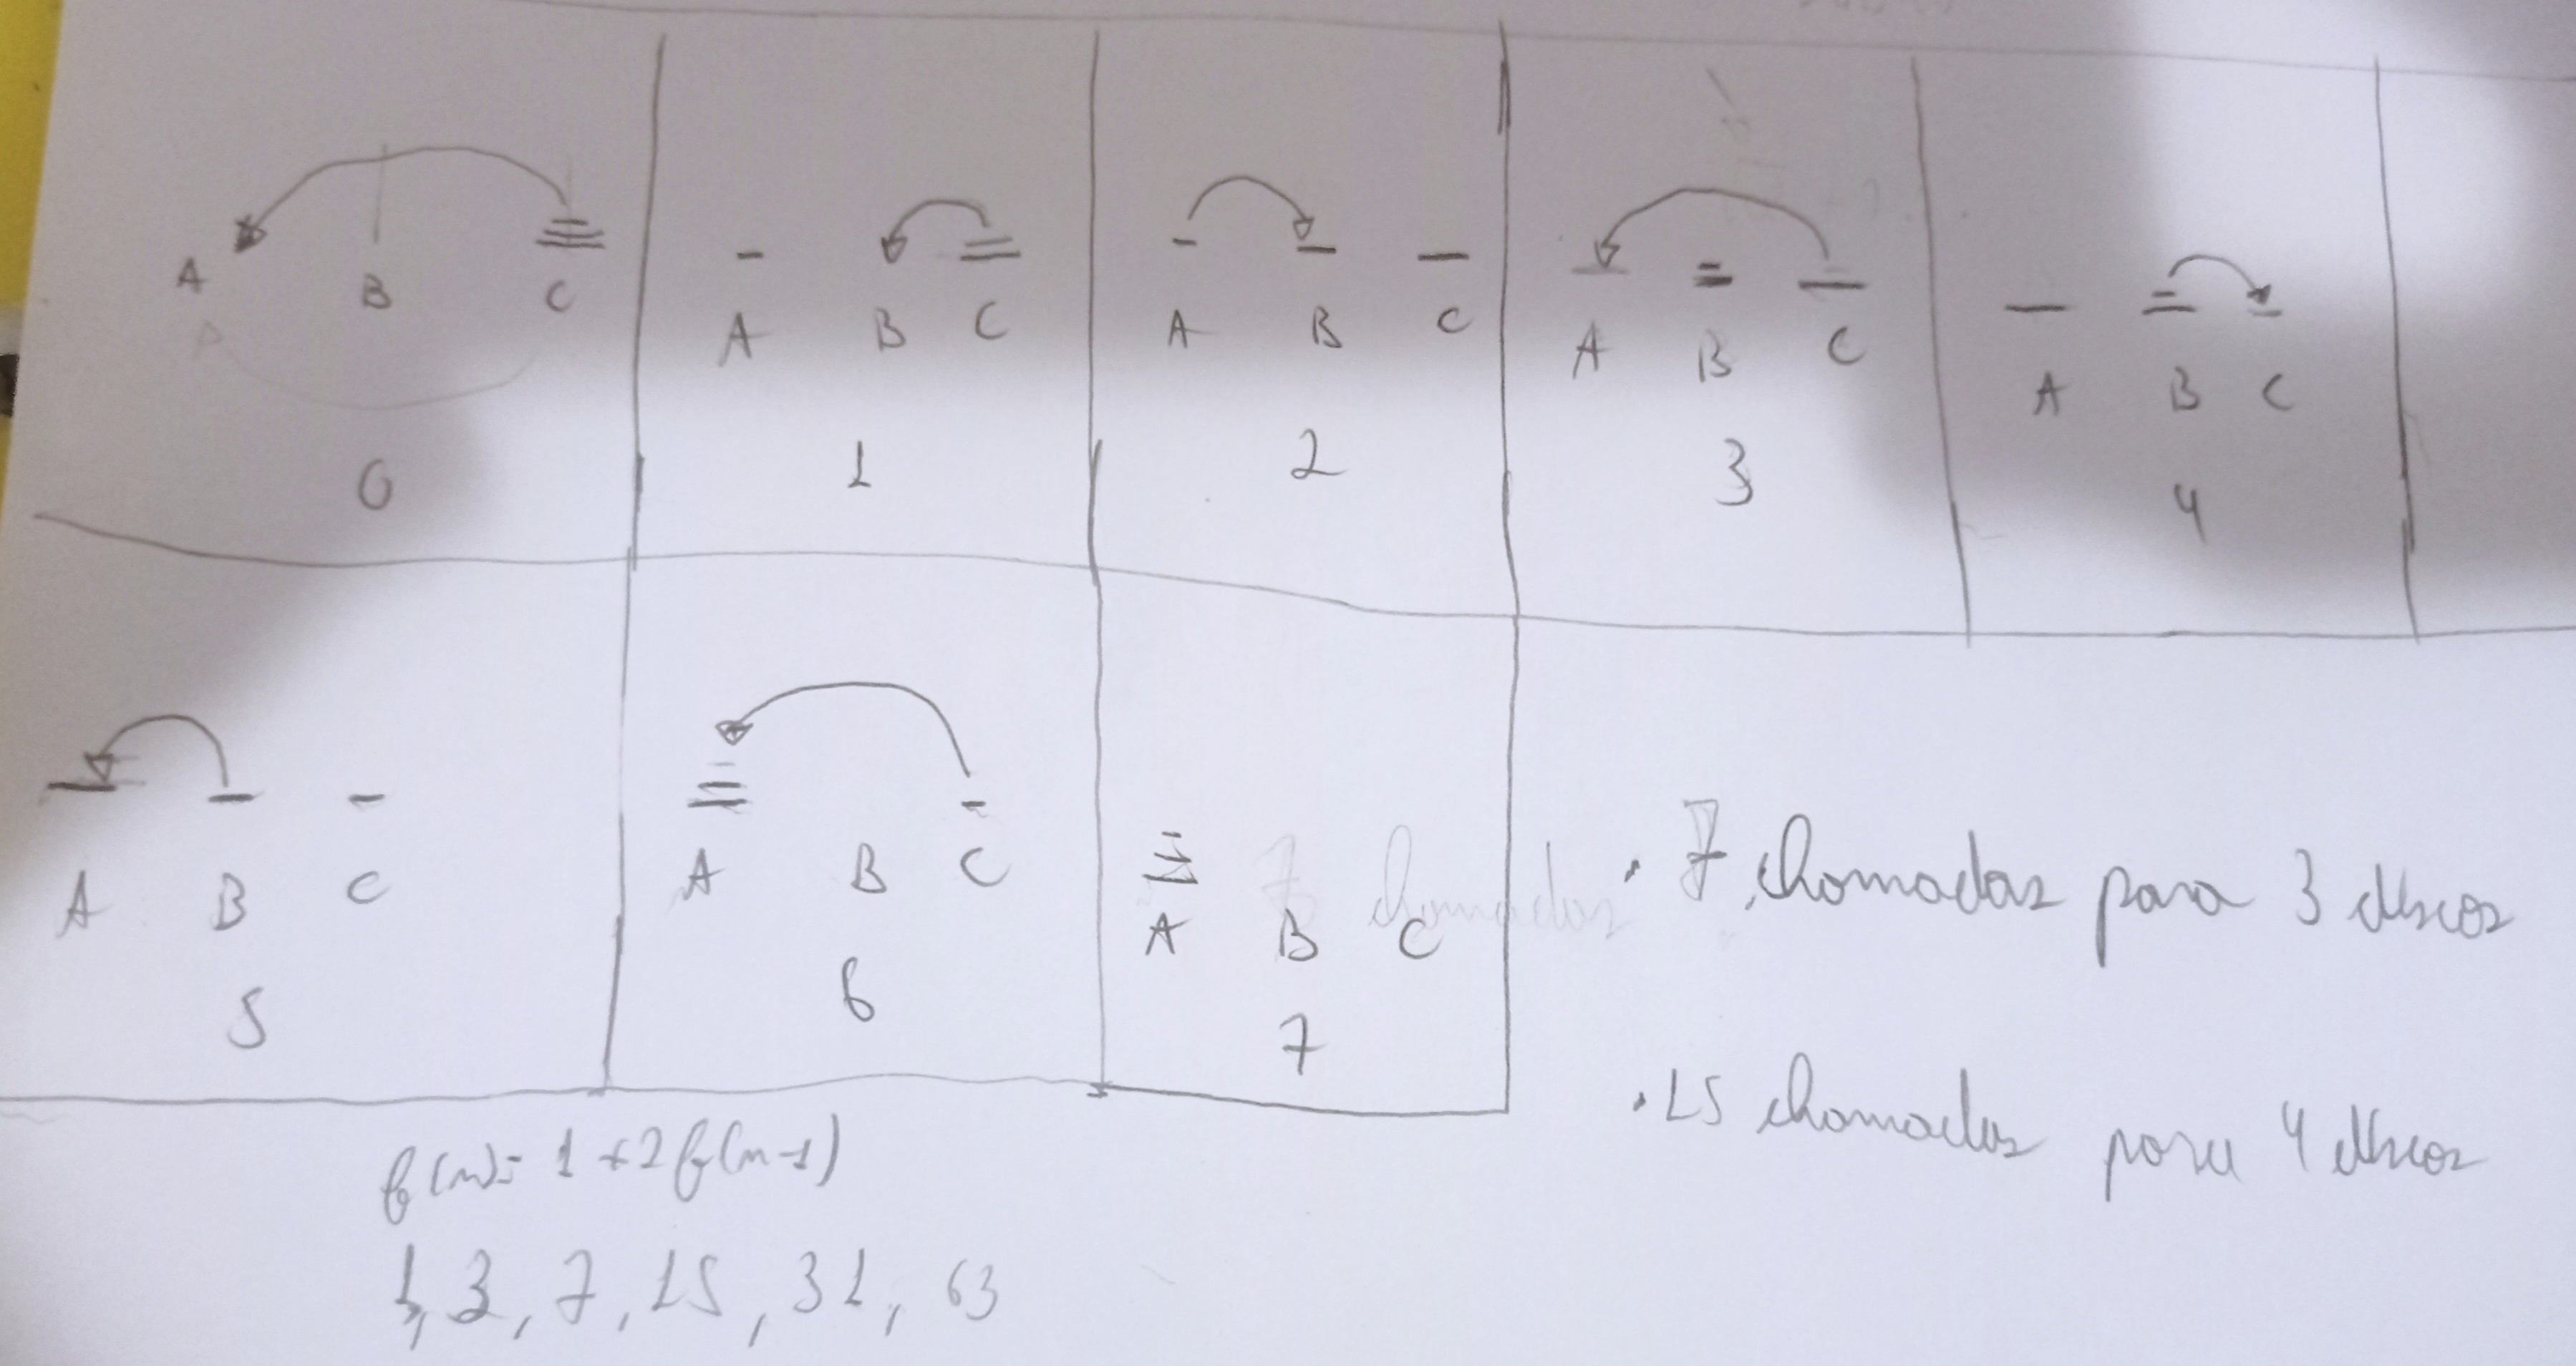 A B C
0
A B C
1
A B C
2
A B C
3
A B C
4
A B C
5
A B C
6
A B C
7
7 chamadas
. 7 chamadas para 3 discos
. 15 chamadas para 4 discos
f(n)= 1 + 2 f(n-1)
1, 3, 7, 15, 31, 63